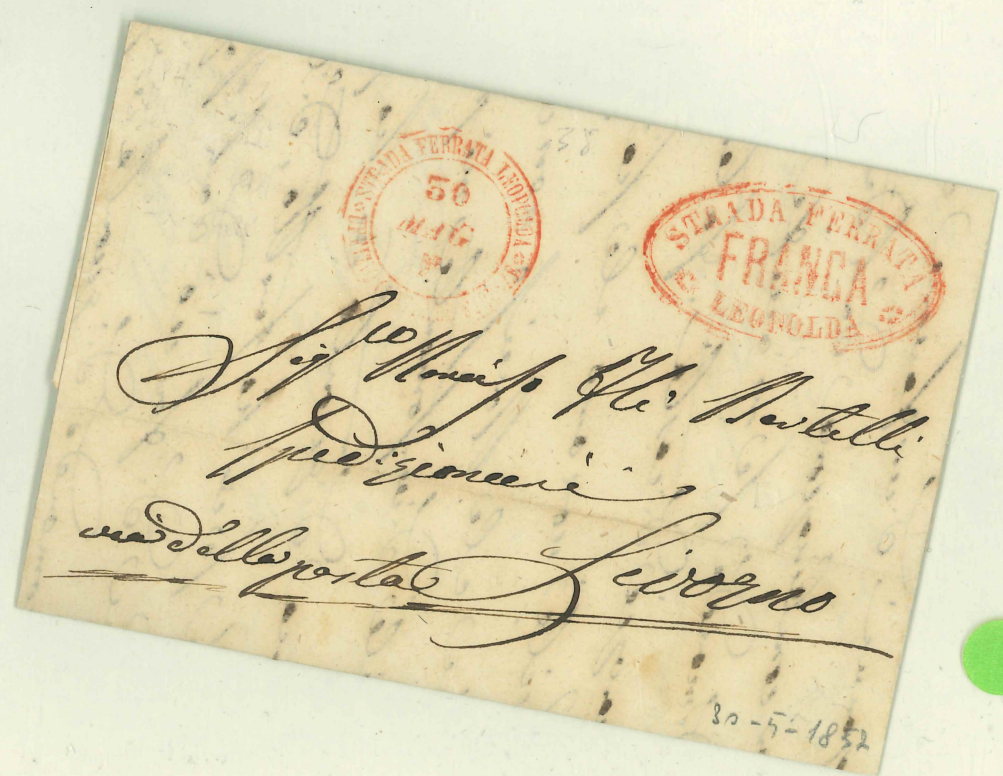 38
STRADA FERRATA LEOPOLDA
30
MAG
STRADA FERRATA
FRANCA
LEOPOLDA
Sig.ri Flli Bartelli
Spedizionieri
via della posta Livorno
30-5-1852